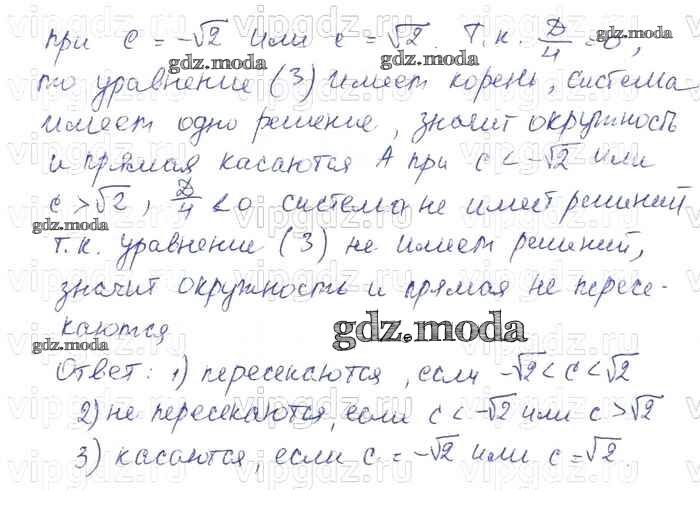 при c = -√2 или c = √2. Т.к. D/4 = 0,
то уравнение (3) имеет корень, система
имеет одно решение, значит окружность
и прямая касаются А при c < -√2 или
c > √2, D/4 < 0 система не имеет решений
т.к. уравнение (3) не имеет решений,
значит окружность и прямая не пересе-
каются
gdz.moda
Ответ: 1) пересекаются, если -√2 < c < √2
2) не пересекаются, если c < -√2 или c > √2
3) касаются, если c = -√2 или c = √2.